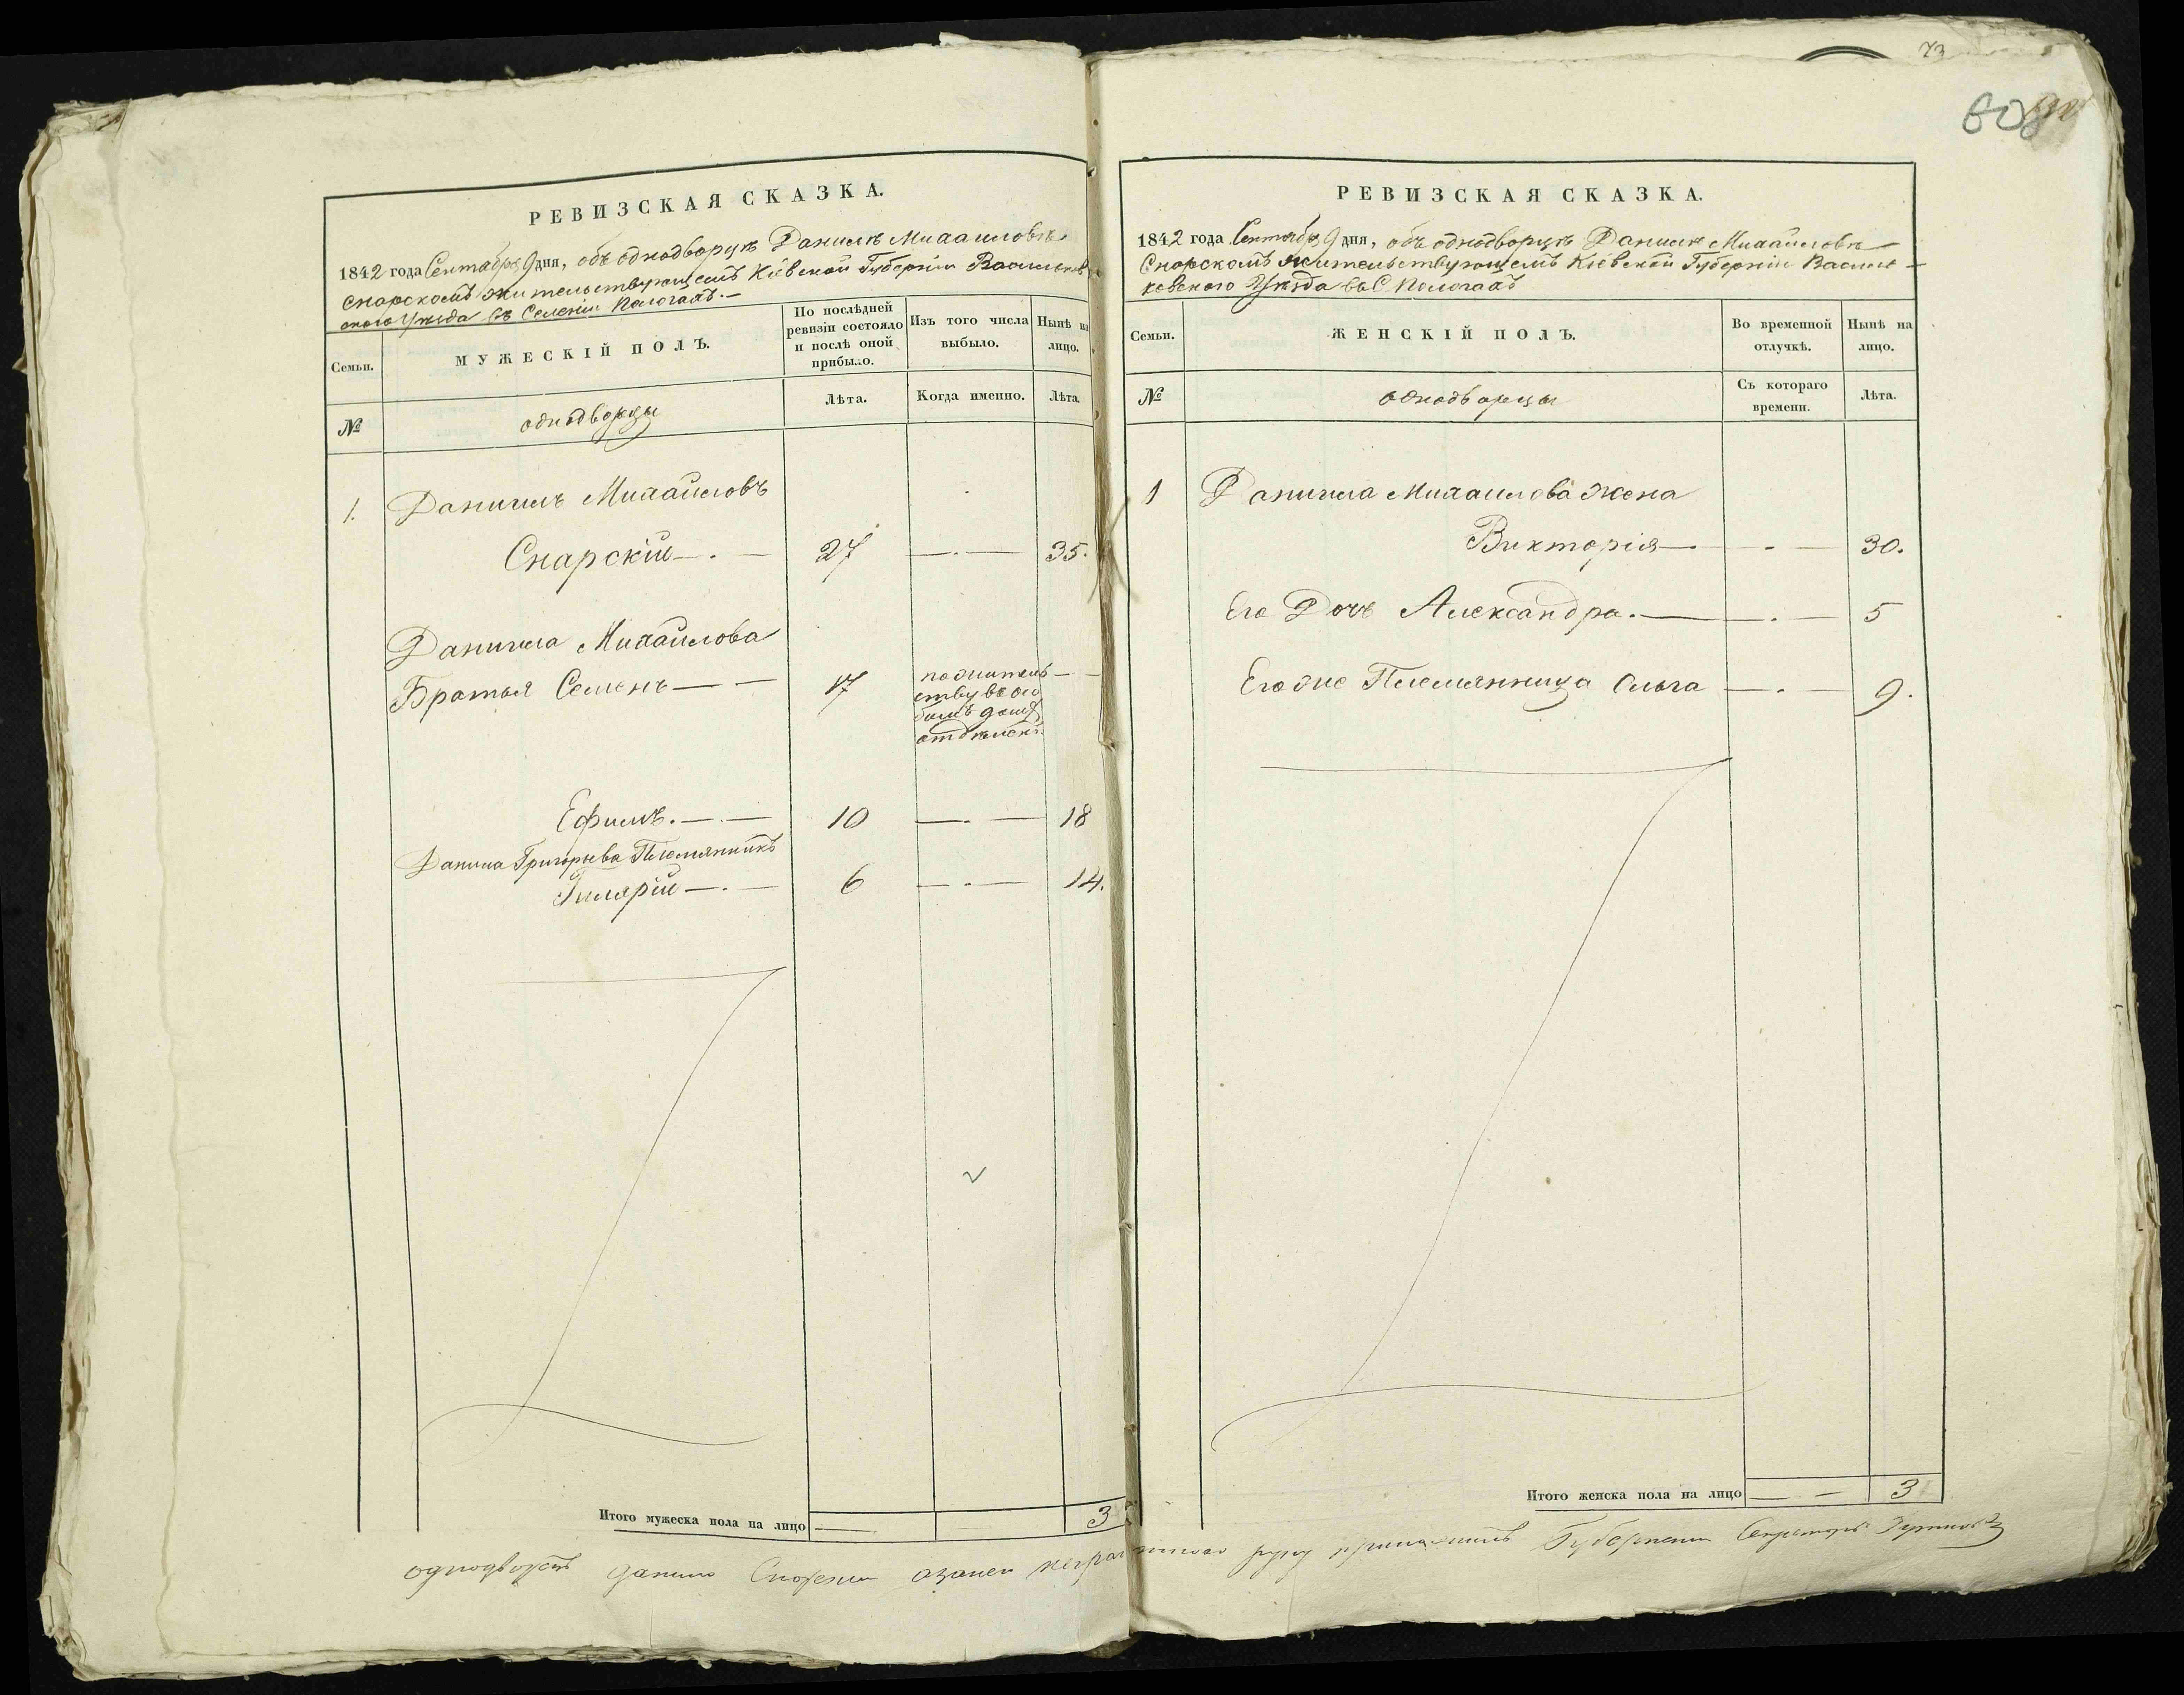 РЕВИЗСКАЯ СКАЗКА.
1842 года Сентября 9 дня, объ однодворцѣ Данилѣ Михайловѣ
Снарскомъ жительствующемъ Кіевской Губерніи Васильков
ского Уѣзда въ Селеніи Пологахъ.
Семьи.
МУЖЕСКІЙ ПОЛЪ.
По послѣдней
ревизіи состояло
и послѣ оной
прибыло.
Изъ того числа
выбыло.
Нынѣ на
лицо.
№
однодворцы
Лѣта.
Когда именно.
Лѣта.
1. Даниилъ Михайловъ
Снарскій 27 35.
Даниила Михайлова
Братья Семенъ 17
пожитель
ству въ осо
бомъ
отдѣленъ
Ефимъ. 10 18
Данила Григорьева Племянникъ
Гилярій 6 14.
Итого мужеска пола на лицо 3
73
608
РЕВИЗСКАЯ СКАЗКА.
1842 года Сентября 9 дня, объ однодворцѣ Данилѣ Михайловѣ
Снарскомъ жительствующемъ Кіевской Губерніи Василь
ковского Уѣзда въ С Пологахъ
Семьи.
ЖЕНСКІЙ ПОЛЪ.
Во временной
отлучкѣ.
Нынѣ на
лицо.
№
однодворцы
Съ котораго
времени.
Лѣта.
1 Даниила Михаилова жена
Викторія 30.
Его Дочь Александра. 5
Его же Племянница Ольга 9.
Итого женска пола на лицо 3
однодворецъ Данило Снарский руку приложилъ Губернский Секретарь